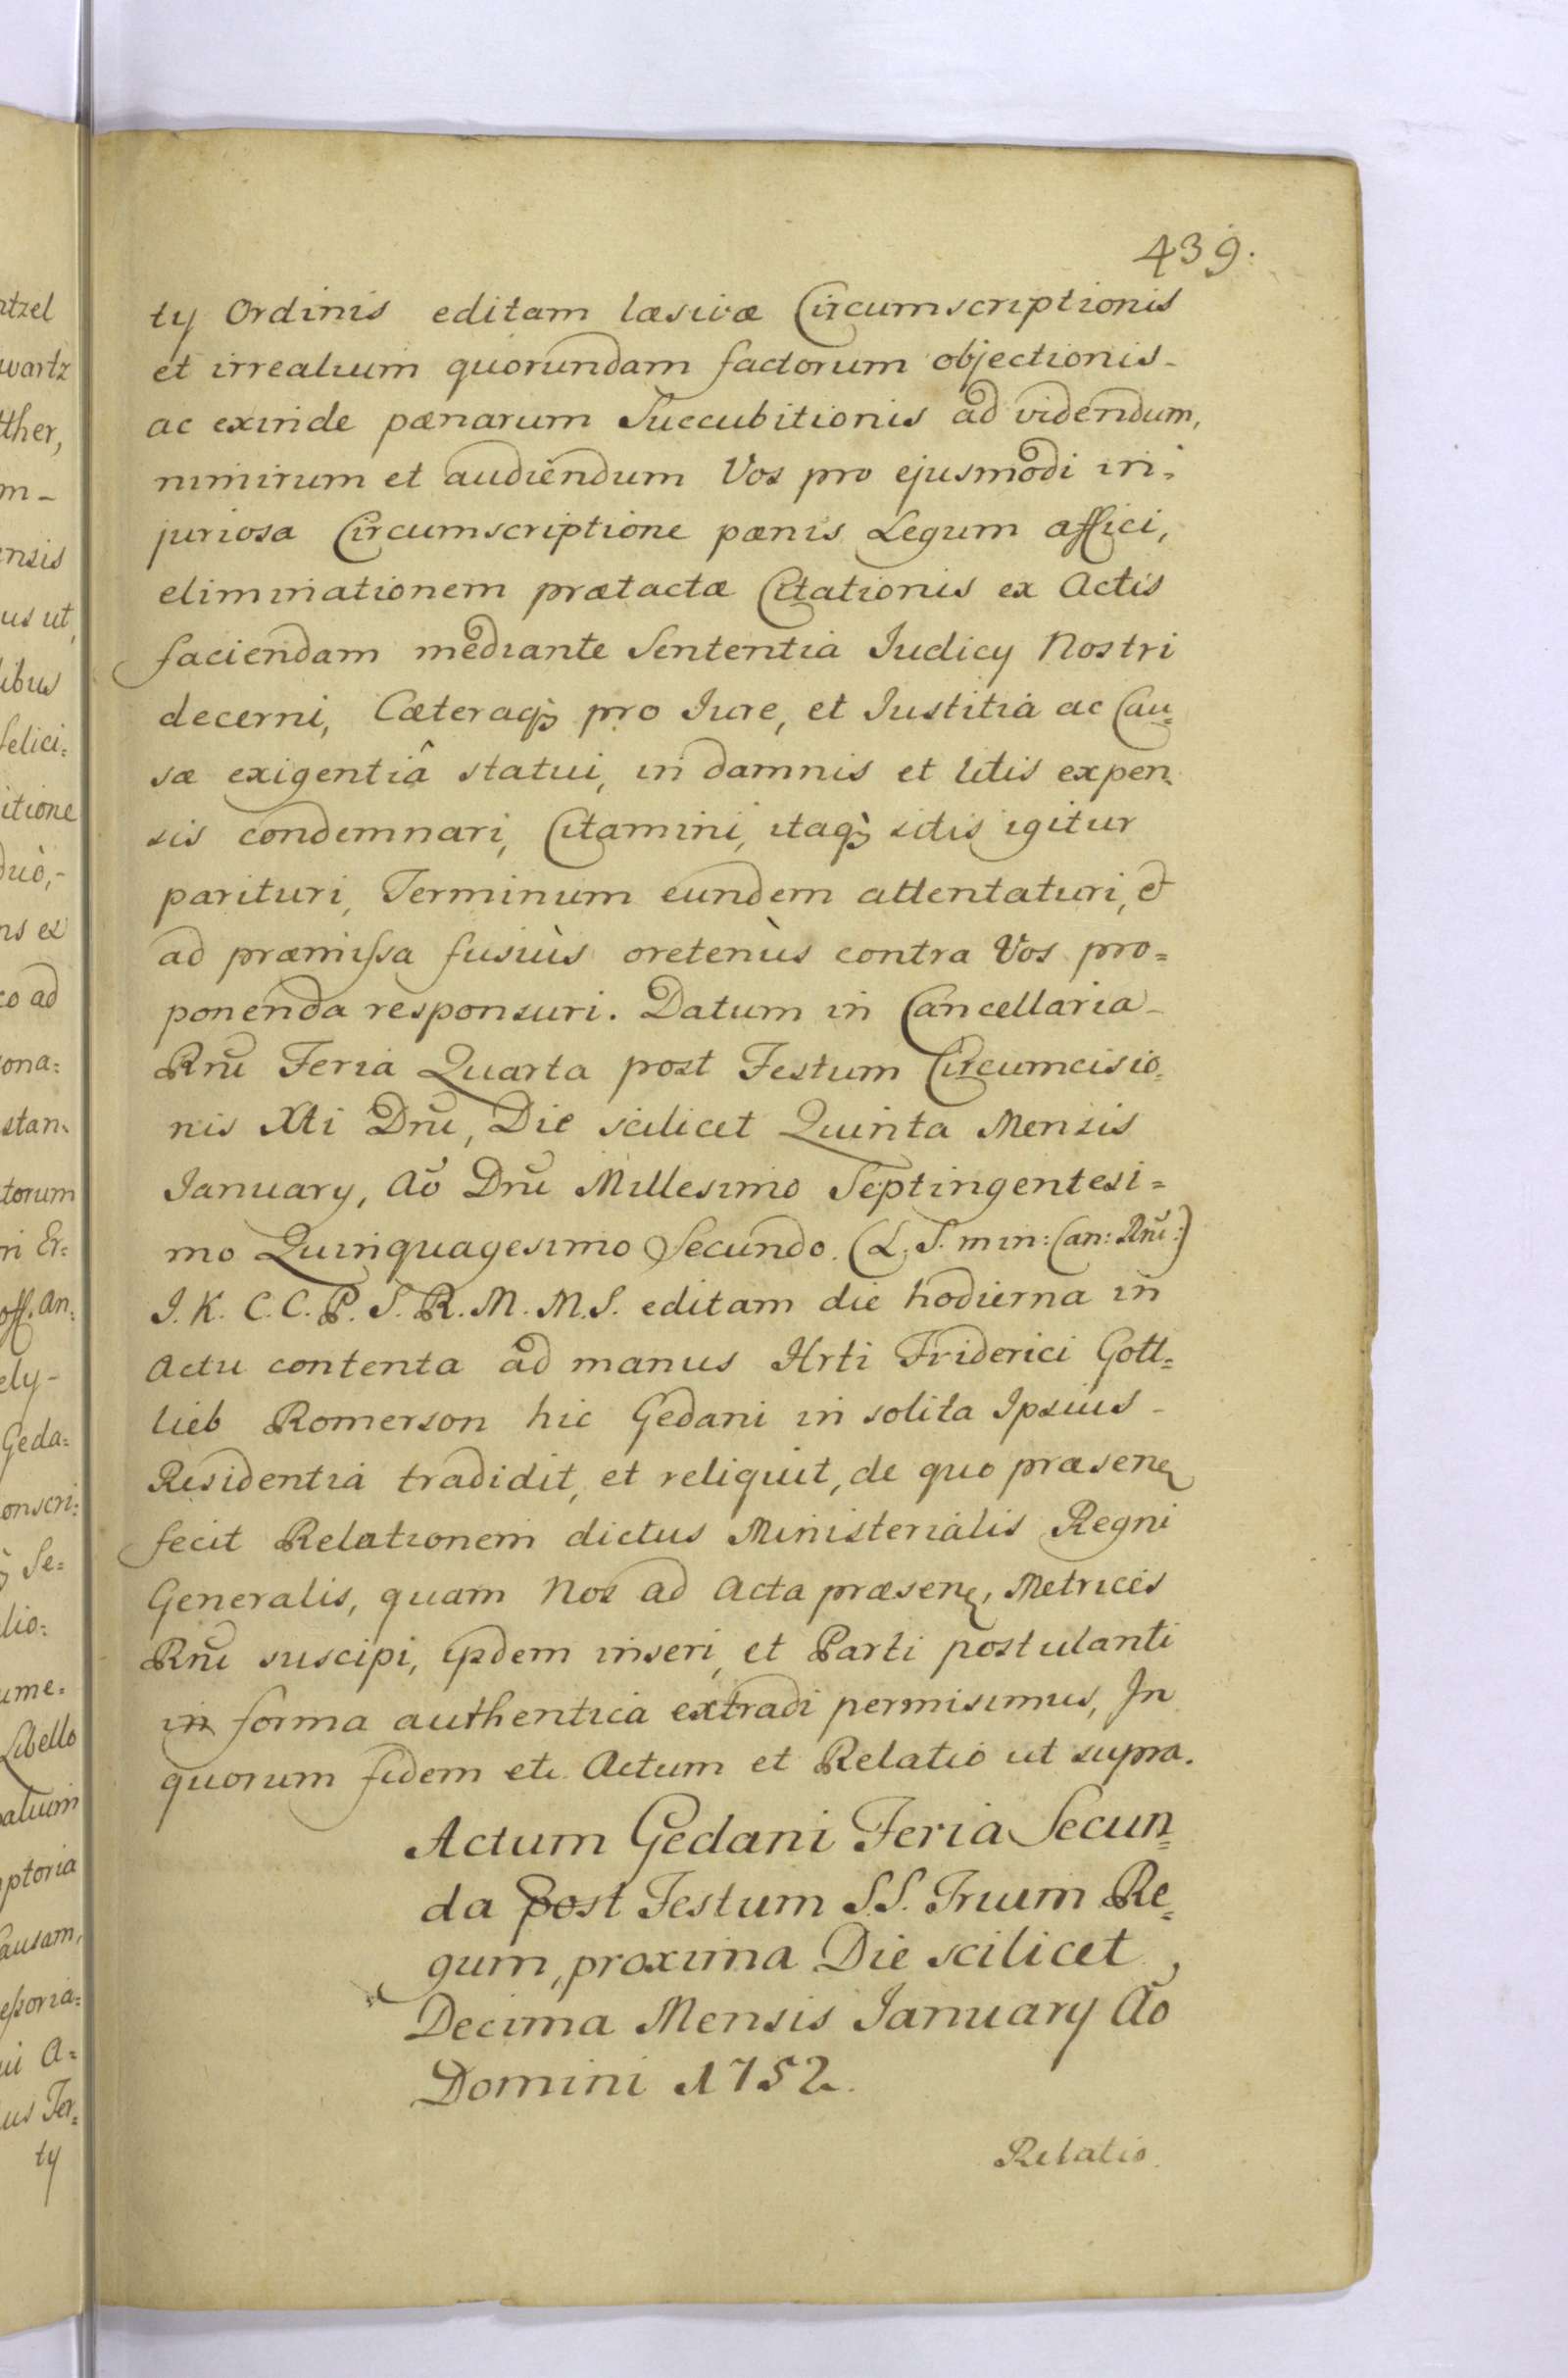 439.
ty Ordinis editam læsivæ Circumscriptionis
et irrealium quorundam factorum objectionis-
ac exinde pænarum Succubitionis ad videndum,
nimirum et audiendum Vos pro ejusmodi in-
juriosa Circumscriptione pænis Legum affici,
eliminationem prætactæ Citationis ex Actis
faciendam mediante Sententia Judicy Nostri
decerni, Cæteraqꝫ pro Jure, et Justitia ac Cau=
sæ exigentiâ statui, in damnis et litis expen-
sis condemnari, Citamini, itaqꝫ sitis igitur
parituri, Terminum eundem attentaturi, et
ad præmissa fusiùs oretenùs contra Vos pro=
ponenda responsuri. Datum in Cancellaria-
Rnũ Feria Quarta post Festum Circumcisio=
nis Xti Dnũ, Die scilicet Quinta Mensis
January, Aõ Dnũ Millesimo Septingentesi=
mo Quinquagesimo Secundo. (L. S. min: Can: Rnũ:)
J. K. C. C. P. S. R. M. M. S. editam die hodierna in
Actu contenta ad manus Hrti Friderici Gott=
lieb Romerson hic Gedani in solita Ipsius-
Residentia tradidit, et reliquit, de quo præsenꝫ
fecit Relationem dictus Ministerialis Regni
Generalis, quam Nos ad Acta præsenꝫ, Metrices
Rnũ suscipi, ijsdem inseri, et Parti postulanti
in forma authentica extradi permisimus, In
quorum fidem etc. Actum et Relatio ut supra.
Actum Gedani Feria Secun=
da post Festum S.S. Trium Re=
gum, proxima Die scilicet,
Decima Mensis January Aõ
Domini 1752.
Relatio.
ntzel
wartz
ther,
m-
ensis
us ut,
ibus
felici=
itione
duò,-
ns ex
co ad
ona=
stan-
torum
ni Er=
off. An=
ely-
Geda=
onscri=
Se=
lio=
ume=
Libello
ptoria
Causam,
us Ter=
ty